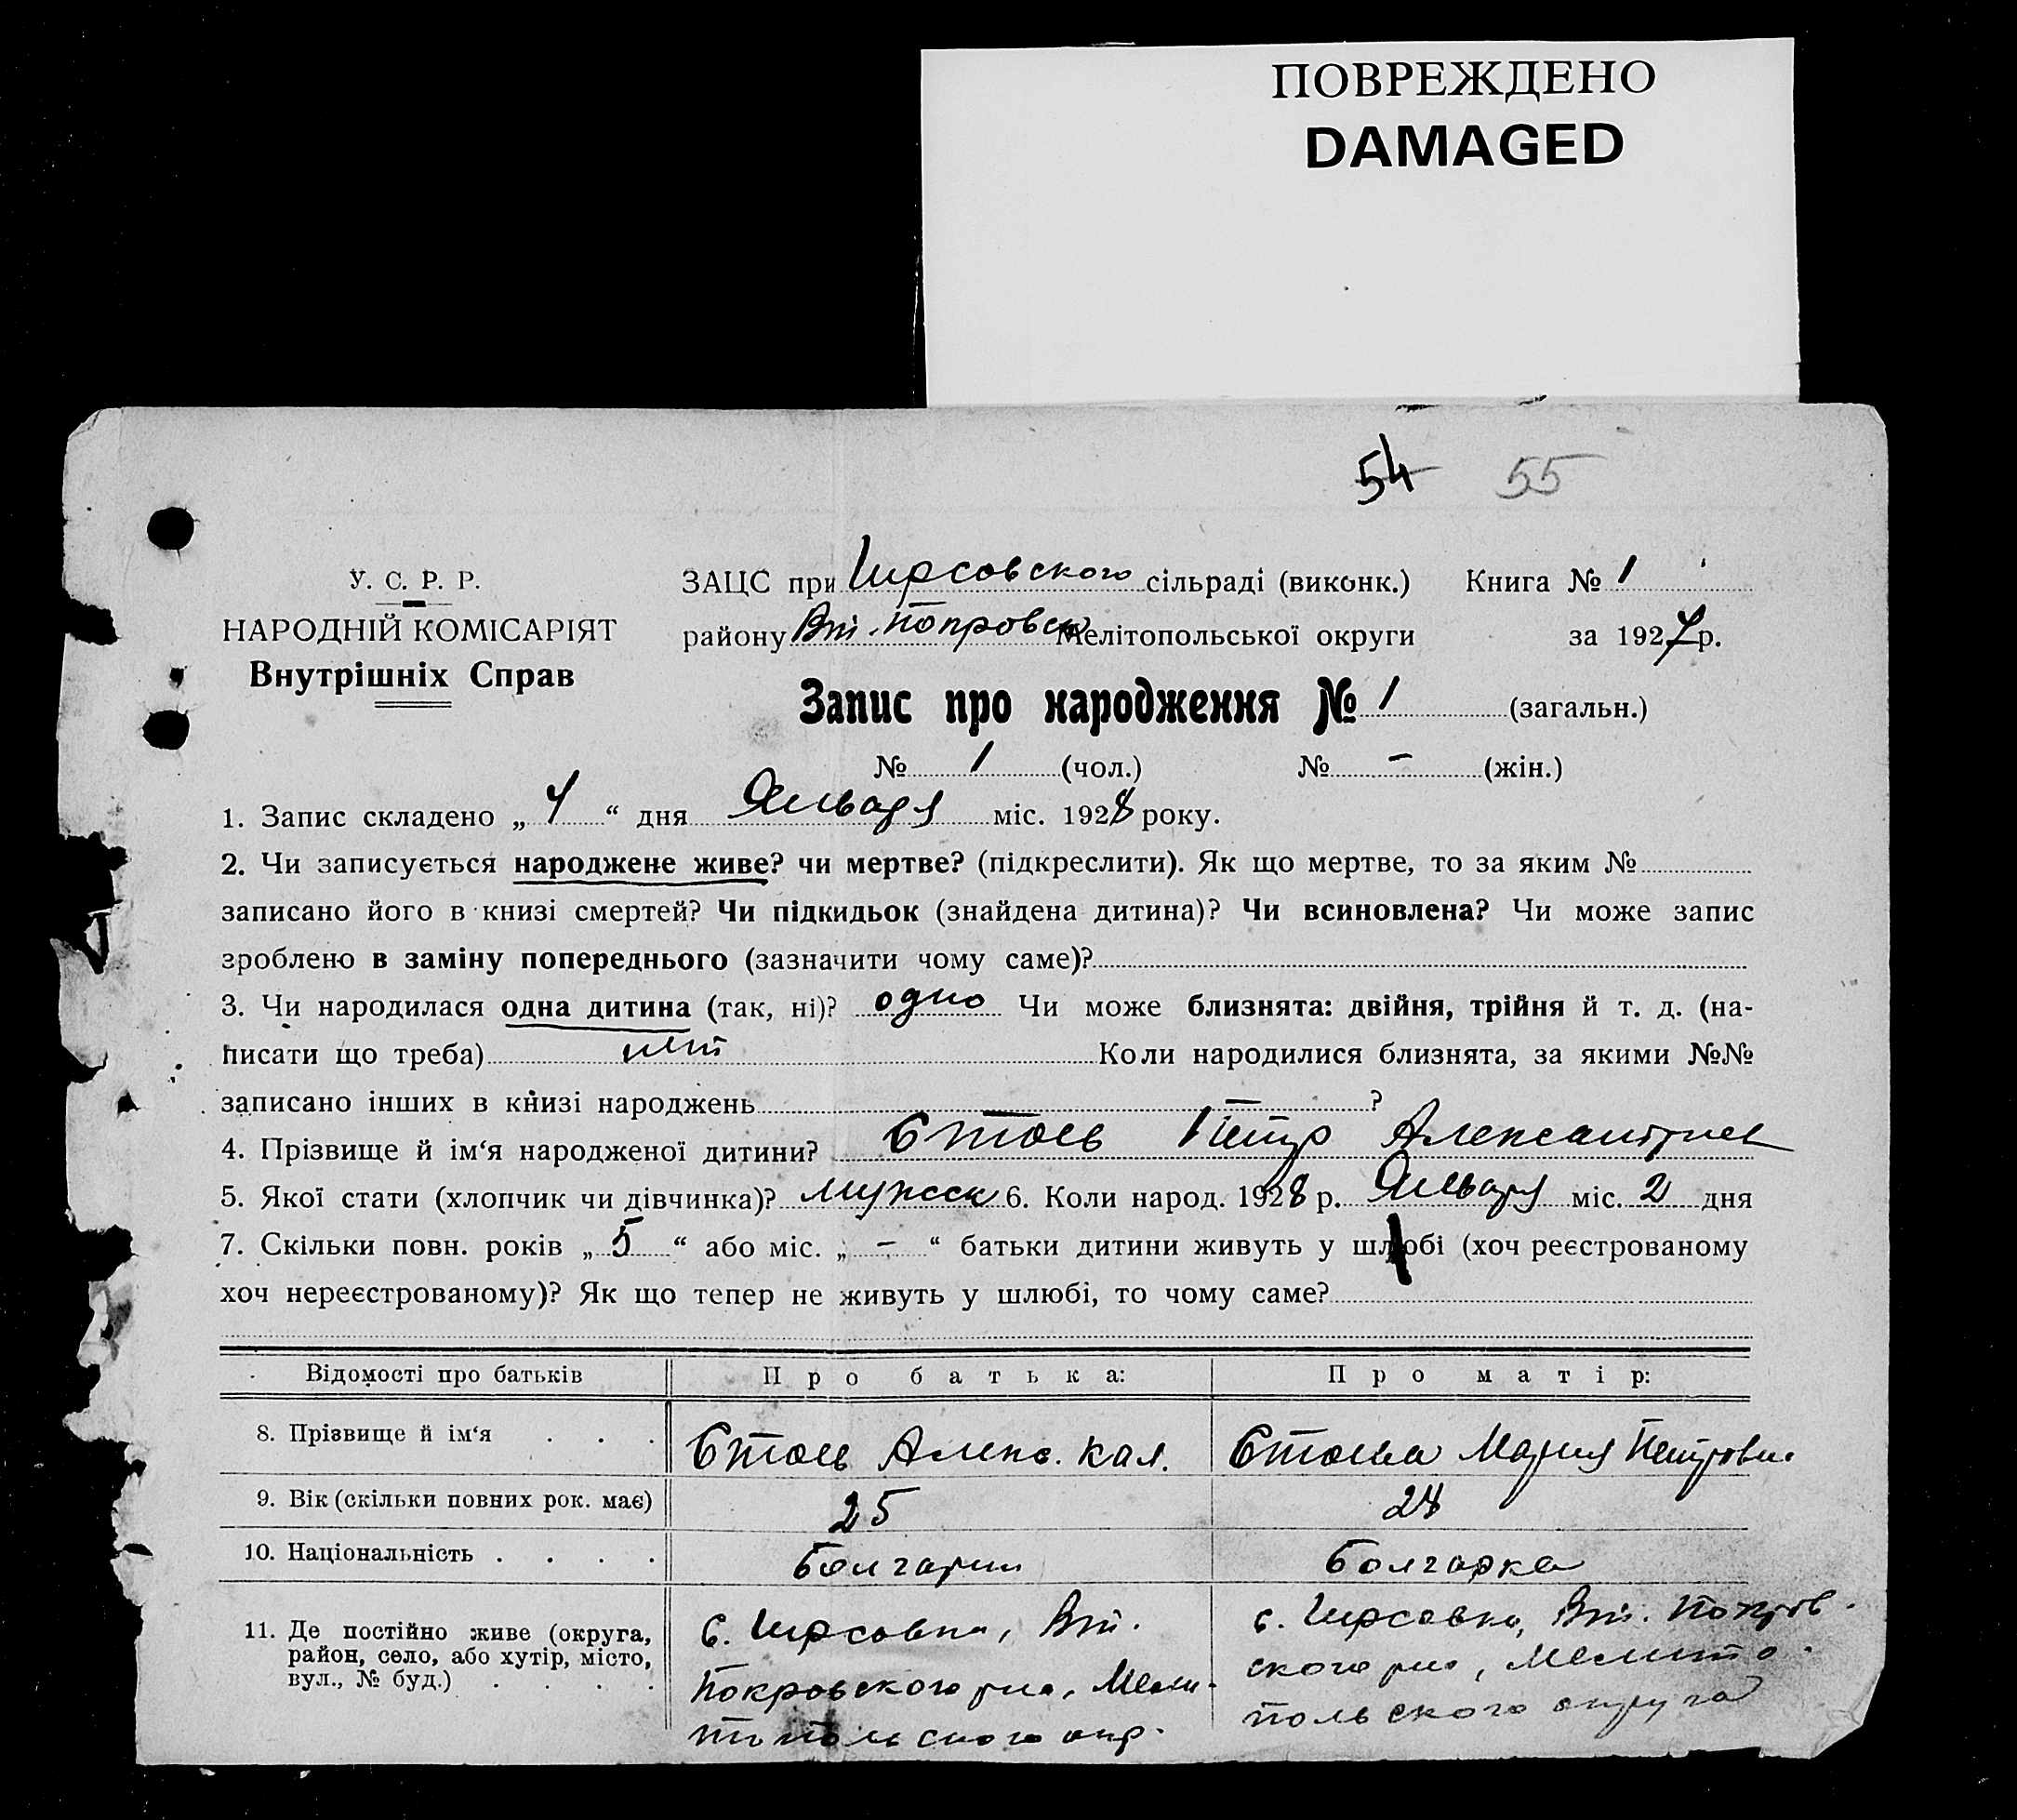 ПОВРЕЖДЕНО
DAMAGED
54 55
У. С. Р. Р.
НАРОДНІЙ КОМІСАРІЯТ
Внутрішніх Справ
ЗАЦС при Гирсовского сільраді (виконк.) Книга № 1
району Вт. Покровск Мелітопольської округи за 1927 р.
Запис про народження № 1 (загальн.)
№ 1 (чол.) № – (жін.)
1. Запис складено „ 4 “ дня Января міс. 1928 року.
2. Чи записується народжене живе? чи мертве? (підкреслити). Як що мертве, то за яким №
записано його в книзі смертей? Чи підкидьок (знайдена дитина)? Чи всиновлена? Чи може запис
зроблено в заміну попереднього (зазначити чому саме)?
3. Чи народилася одна дитина (так, ні)? одно Чи може близнята: двійня, трійня й т. д. (на-
писати що треба) нет Коли народилися близнята, за якими №№
записано інших в книзі народжень ?
4. Прізвище й ім‘я народженої дитини? Стоев Петр Александрнев
5. Якої стати (хлопчик чи дівчинка)? мужеск 6. Коли народ. 1928 р. Января міс. 2 дня
7. Скільки повн. років „ 5 “ або міс. „ – “ батьки дитини живуть у шлюбі (хоч реєстрованому
хоч нереєстрованому)? Як що тепер не живуть у шлюбі, то чому саме?
Відомості про батьків Про батька: Про матір:
8. Прізвище й ім‘я . . . Стоев Алекс. Кал. Стоева Мария Петровн.
9. Вік (скільки повних рок. має) 25 24
10. Національність . . . . Болгарин Болгарка
11. Де постійно живе (округа, район, село, або хутір, місто, вул., № буд.) . . . .
с. Гирсовка, Вт.
Покровского р-на, Мели-
топольского окр.
с. Гирсовка, Вт. Покров-
ского р-на, Мелито-
польского округа